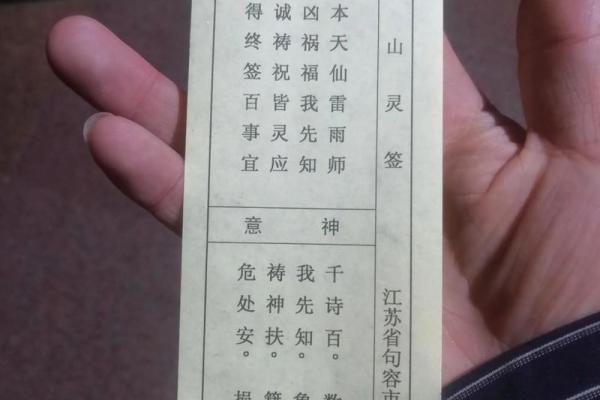 山灵签
江苏省句容市
本天仙雷雨师
凶祸福我先知
诚祷祝皆灵应
得终签百事宜
神意
千诗百。数
我先知。象
祷神扶。籍
危处安。损